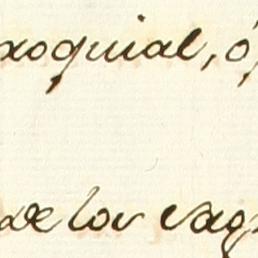 xoquial, ó
de los sag